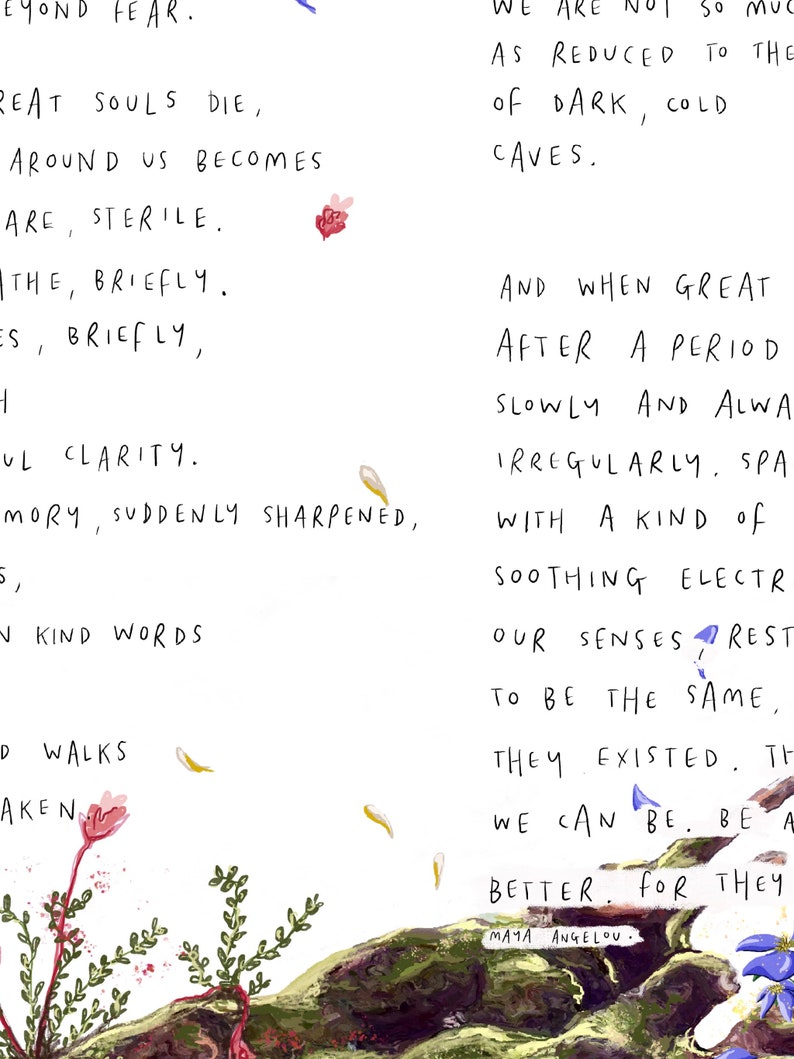 BEYOND FEAR.
GREAT SOULS DIE,
AROUND US BECOMES
RARE, STERILE.
BRIEFLY.
BRIEFLY,
CLARITY.
MEMORY, SUDDENLY SHARPENED,
KIND WORDS
WALKS
TAKEN.
WE ARE NOT SO MUC
AS REDUCED TO THE
OF DARK, COLD
CAVES.
AND WHEN GREAT
AFTER A PERIOD
SLOWLY AND ALWA
IRREGULARLY. SPA
WITH A KIND OF
SOOTHING ELECTR
OUR SENSES, REST
TO BE THE SAME,
THEY EXISTED.
WE CAN BE. BE A
BETTER. FOR THEY
MAYA ANGELOU.